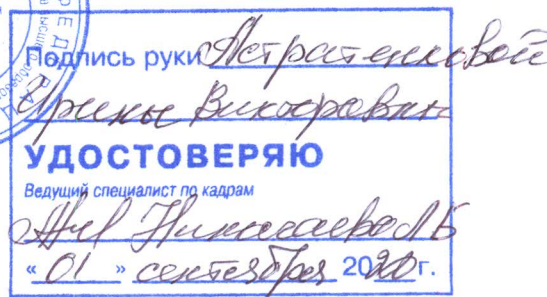 Подпись руки Астратенковой
Ирины Викторовны
УДОСТОВЕРЯЮ
Ведущий специалист по кадрам
Николаева Л Б
« 01 » сентября 2020 г.